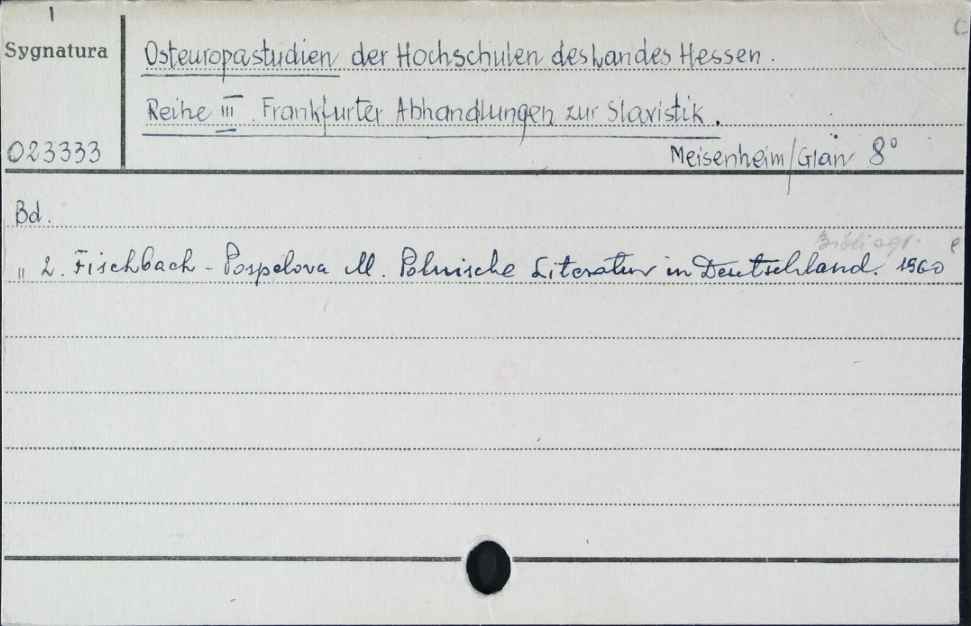 Sygnatura
Osteuropastudien der Hochschulen des Landes Hessen.
Reihe III. Frankfurter Abhandlungen zur Slavistik.
023333
Meisenheim/Glan 8°
Bd.
Bibliogr.
" 2. Fischbach - Pospelova M. Polnische Literatur in Deutschland. 1960